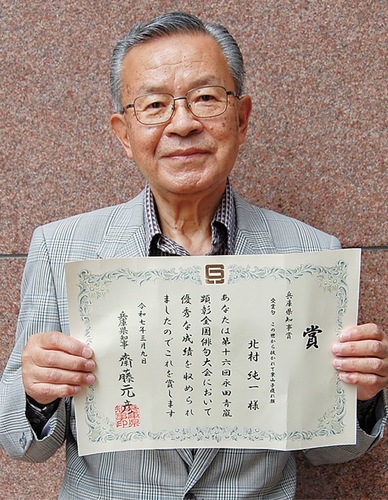 賞
兵庫県知事賞
受賞句 この世から抜かれて案山子
北村 純一 様
あなたは第十六回永田青嵐
顕彰全国俳句大会において
優秀な成績を収められ
ましたのでこれを賞します
令和七年三月九日
兵庫県知事 齋藤元彦